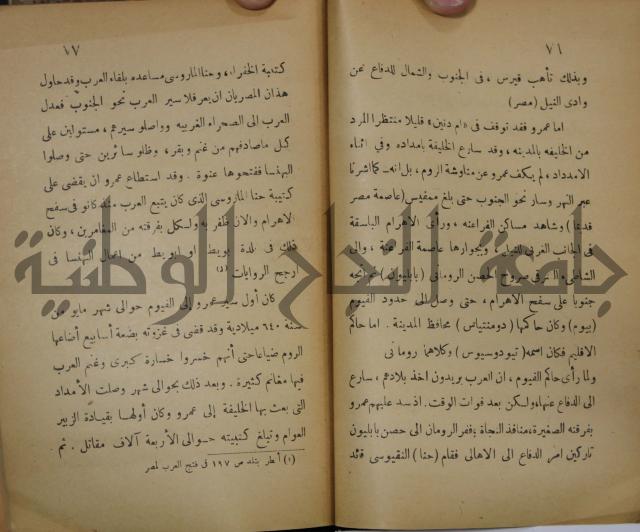 ٧١
وبذلك تأهب قيرس ، فى الجنوب والشمال للدفاع عن
وادى النيل (مصر)
اما عمرو فقد توقف فى «ام دنين» قليلا منتظرا المرد
من الخليفه بالمدينه ، وقد سارع الخليفة بامداده وفى اثناء
الامدداد ، لم يكف عمرو عن مناوشة الروم ، بل انه
عبر النهر وسار نحو الجنوب حتى بلغ ممفيس (عاصمة مصر
قدئما) وشاهد مساكن الفراعنه ، ورأى الاهرام الباسقة
فى الجانب الغربى للنيل ، وبجوارها عاصمة الفرعنة ، والى
الشاطىء الشرقى الحصن الرومانى (بابليون)
جنوبا على سفح الاهرام ، حتى وصل الى حدود الفيوم
(بيوم) وكان حاكمها (دومنتياس) محافظ المدينة . اما حاكم
الاقليم فكان اسمه (تيودوسيوس) وكلاهما رومانى
ولما رأى حاكم الفيوم ، ان العرب يريدون اخذ بلادهم ، سارع
الى الدفاع عنها ، ولكن بعد فوات الوقت . اذ سد عليهم عمرو
بفرقته الصغيرة ، منافذ النجاة ، ففر الرومان الى حصن بابليون
تاركين امر الدفاع الى الاهالى فقام (حنا) النقيوسى قائد
١٧
كتيبة الخفراء ، وحنا الماروسى مساعده بلقاء العرب وقد حاول
هذان المصريان ان يعرقلا سير العرب نحو الجنوب فعدل
العرب الى الصحراء الغربيه وواصلو سيرهم ، مستولين على
كل ماصادفهم من غنم وبقر ، وظلو سائرين حتى وصلوا
البهنسا ففتحوها عنوة . وقد استطاع عمرو ان يقضى على
كتيبة حنا الماروسى الذى كان يتبع العرب
الاهرام والان ظفر به ولكل بفرقته من المغامرين ، وكان
ذلك فى بلدة بويط او ابويط من اعمال البهنسا فى
ارجح الروايات (١)
كان أول سير عمرو إلى الفيوم حوالى شهر مايو من
سنة ٦٤٠ ميلادية وقد قضى فى غزوته بضعة أسابيع أضاعها
الروم ضياعا حتى أنهم خسروا خسارة كبرى وغنم العرب
فيها مغانم كثيرة . وبعد ذلك بحوالى شهر وصلت الأمداد
التى بعث بها الخليفة إلى عمرو وكان أولها بقيادة الزبير
العوام وتبلغ كتيبته حوالى الأربعة آلاف مقاتل . ثم
(١) أنظر بتلد ص ١٩٧ فى فتح العرب لمصر
جامعة النجاح الوطنية